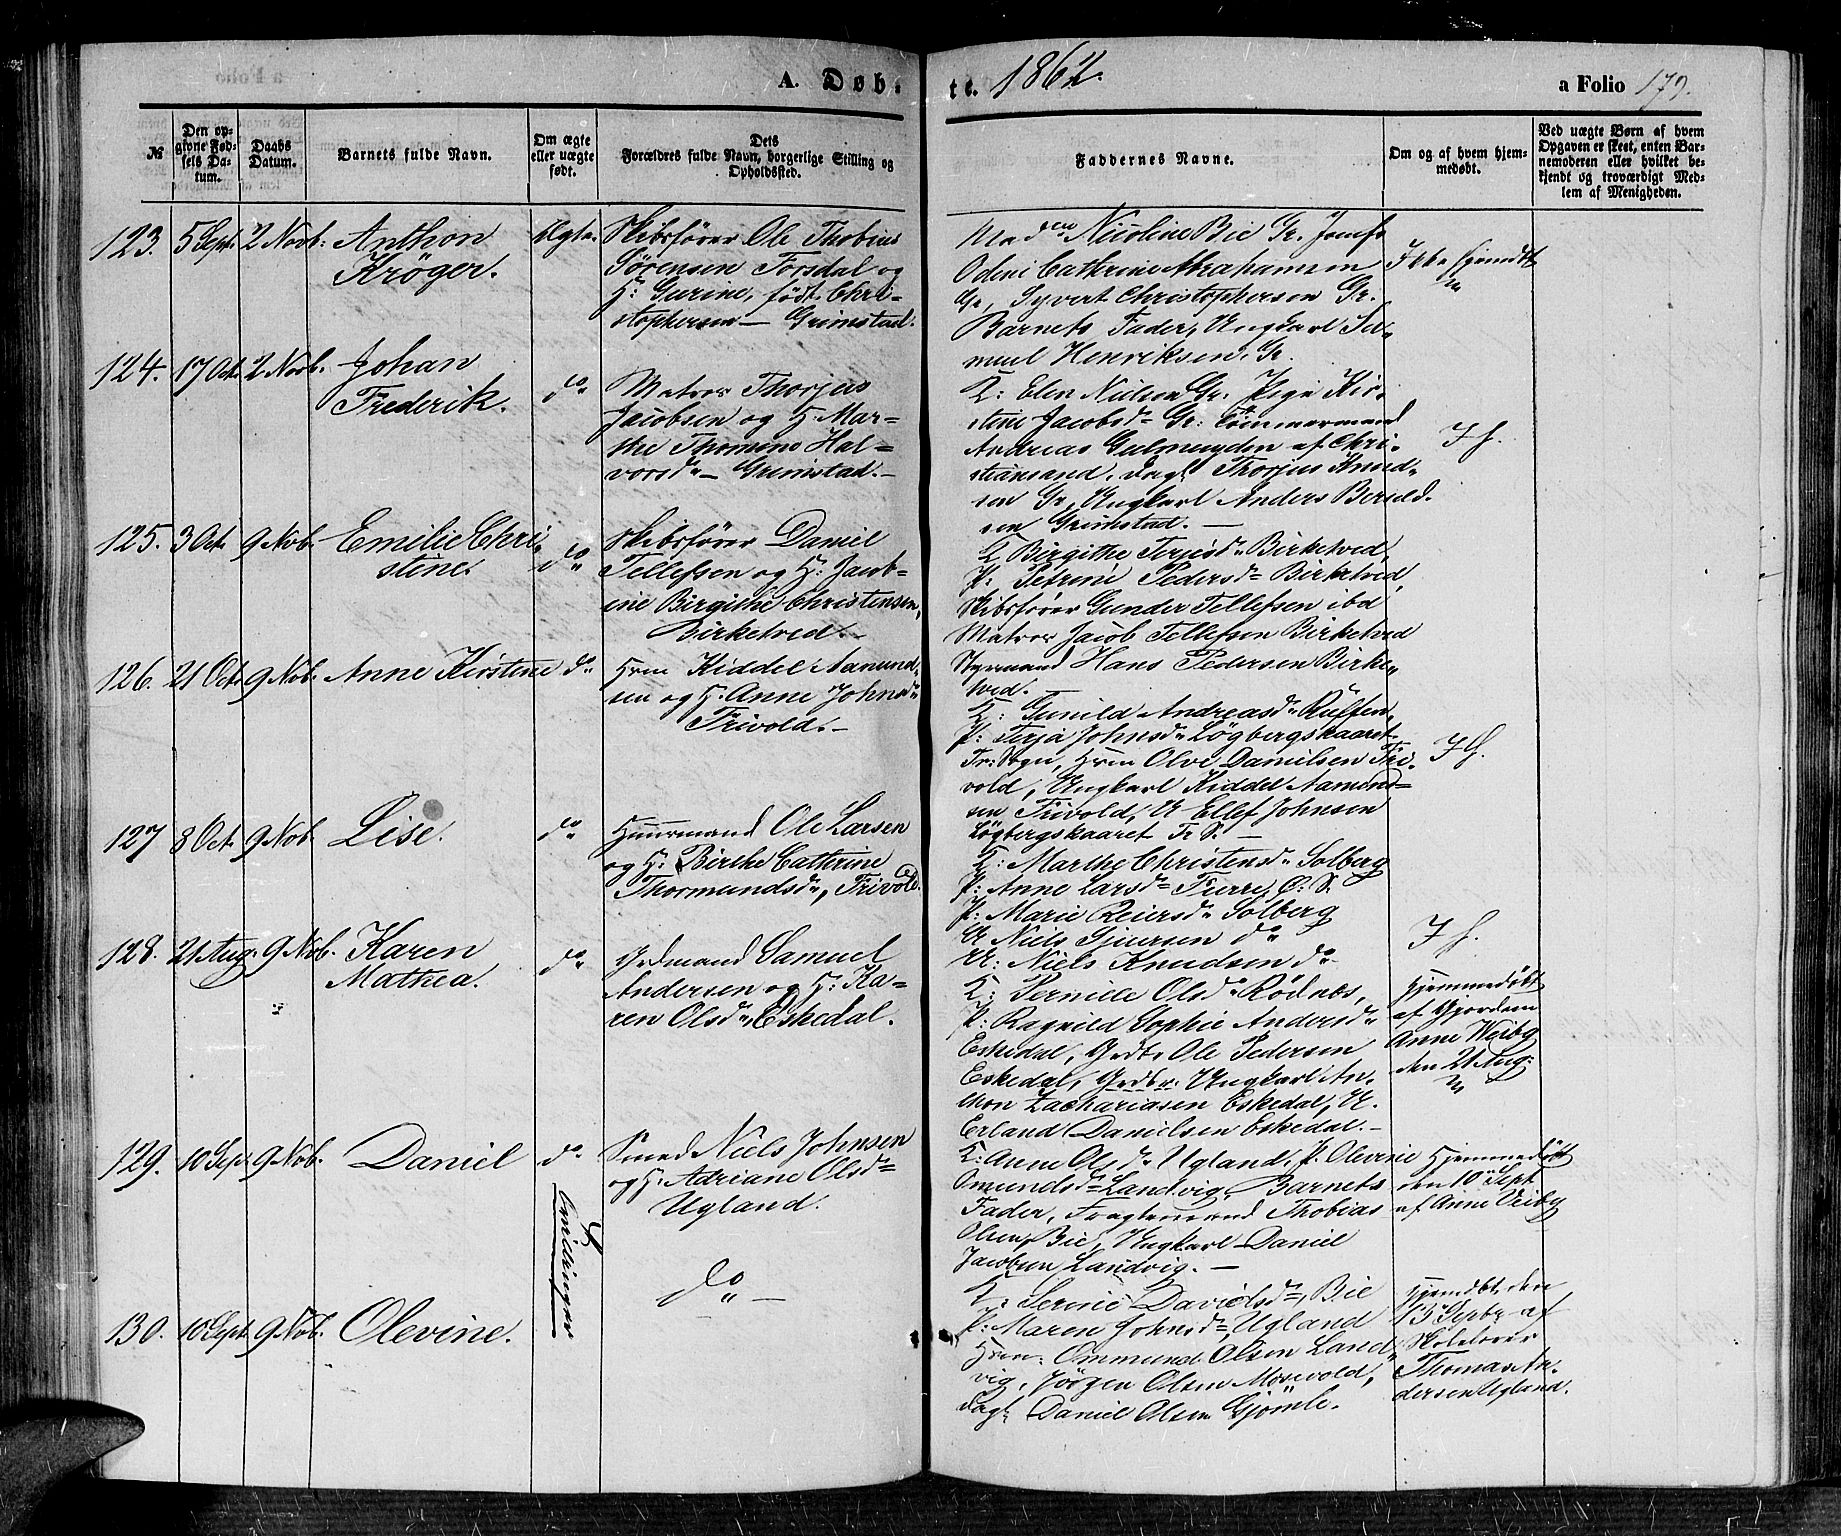 A. Døb.
te. 1862.
a Folio 179.
№
Den op-
givne Fød-
sels Da-
tum.
Daabs
Datum.
Barnets fulde Navn.
Om ægte
eller uægte
født.
Dets
Forældres fulde Navn, borgerlige Stilling og
Opholdssted.
Faddernes Navne.
Om og af hvem hjem-
medøbt.
Ved uægte Børn af hvem
Opgaven er skeet, enten Bar-
nemoderen eller hvilket be-
kjendt og troværdigt Med-
lem af Menigheden.
123. 5 Sept. 2 Novb: Anthon
Krøger.
Ægte.
Skibsfører Ole Thobias
Sörensen Forsdal og
H: Gurine, født Chri-
stophersen – Grimstad.
Mad Nicoline Bie Gr. Jomfr
Odeni Cathrine Abrahamsen
Gr, Syvert Christophersen Gr.
Barnets Fader, Ungkarl Sa-
muel Henriksen, Gr.
Ikke hjemdt
124. 17 Oct. 2 Novb. Johan
Frederik.
do
Matros Thorjus
Jacobsen og H: Mar-
the Thomine Hal-
vorsd – Grimstad. –
K: Elen Nielsen Gr. Pige Kir-
stine Jacobsd Gr: Tömmermand
Andreas Gulmunden af Chri-
stiansand, Dagl Thorjus Knud-
sen Gr, Ungkarl Anders Beruld-
sen Grimstad. –
I h.
125. 3 Oct. 9 Nob. Emilie Chri-
stine.
do
Skibsfører Daniel
Tellefsen og H: Jacob-
ine Birgithe Christensen,
Birketved. –
K Birgithe Terjesd Birketved,
P: Petrine Pedersd Birketved,
Skibsfører Gunder Tellefsen ibd
Matros Jacob Tellefsen Birketved
Styrmand Hans Pedersen Birke-
tved.
126. 21 Oct. 9 Nob. Anne Kirstine do
Hrm Kiddel Aanund-
sen og H. Anne Johnsd
Trivold. –
K: Gunild Andreasd Ruffen,
P: Terja Johnsd Løgbergskaaret
Tr: Sogn, Hrm Olve Danielsen Tri-
vold, Ungkarl Kiddel Aanund-
sen Trivold, U Ellef Johnsen
Løgbergskaaret Tr S. –
I h.
127 8 Oct. 9 Nob. Lise.
do
Huusmand Ole Larsen
og H: Birthe Cathrine
Thormundsd, Trivold.
K: Marthe Christensd Solberg
P: Anne Larsd Fierre, Ø. S.
P: Marie Reiersd Solberg
U Niels Gjursen do
U: Niels Knudsen do
I h.
128. 21 Aug. 9 Nob. Karen
Mathea.
do
Grdmand Samuel
Andersen og H: Ka-
ren Olsd, Eskedal.
K: Pernille Olsd Rödnes,
P: Ragnild Sophie Andersd
Eskedal, Grdbr Ole Pedersen
Eskedal, Grdbr. Ungkarl An-
thon Zachariasen Eskedal, U.
Erland Danielsen Eskedal. –
Hjemmedøbt
af Gjordem
Anne Weiby
den 21 Aug:
129. 10 Sep. 9 Nob. Daniel
do
Smed Niels Johnsen
og H. Adriane Olsd
Ugland.
K: Anne Olsd Ugland, P. Olevine
Omundsd Landvig, Barnets
Fader, Thobias
Olsen Bie, Ungkarl Daniel
Jacobsen Landvig. –
Hjemmedøbt
den 10 Sept
af Anne Veiby
Tvillinger
130. 10 Sept. 9 Nob. Olevine.
do –
K: Serine Davidsd, Bie
P: Maren Johnsd, Ugland
Hrm: Ommund Olsen Land-
vig, Jörgen Olsen Mosevold,
Dagl Daniel Olsen Gjömle.
Hjemdbt den
13 Septbr af
Skolelærer
Thomas An-
dersen Ugland.